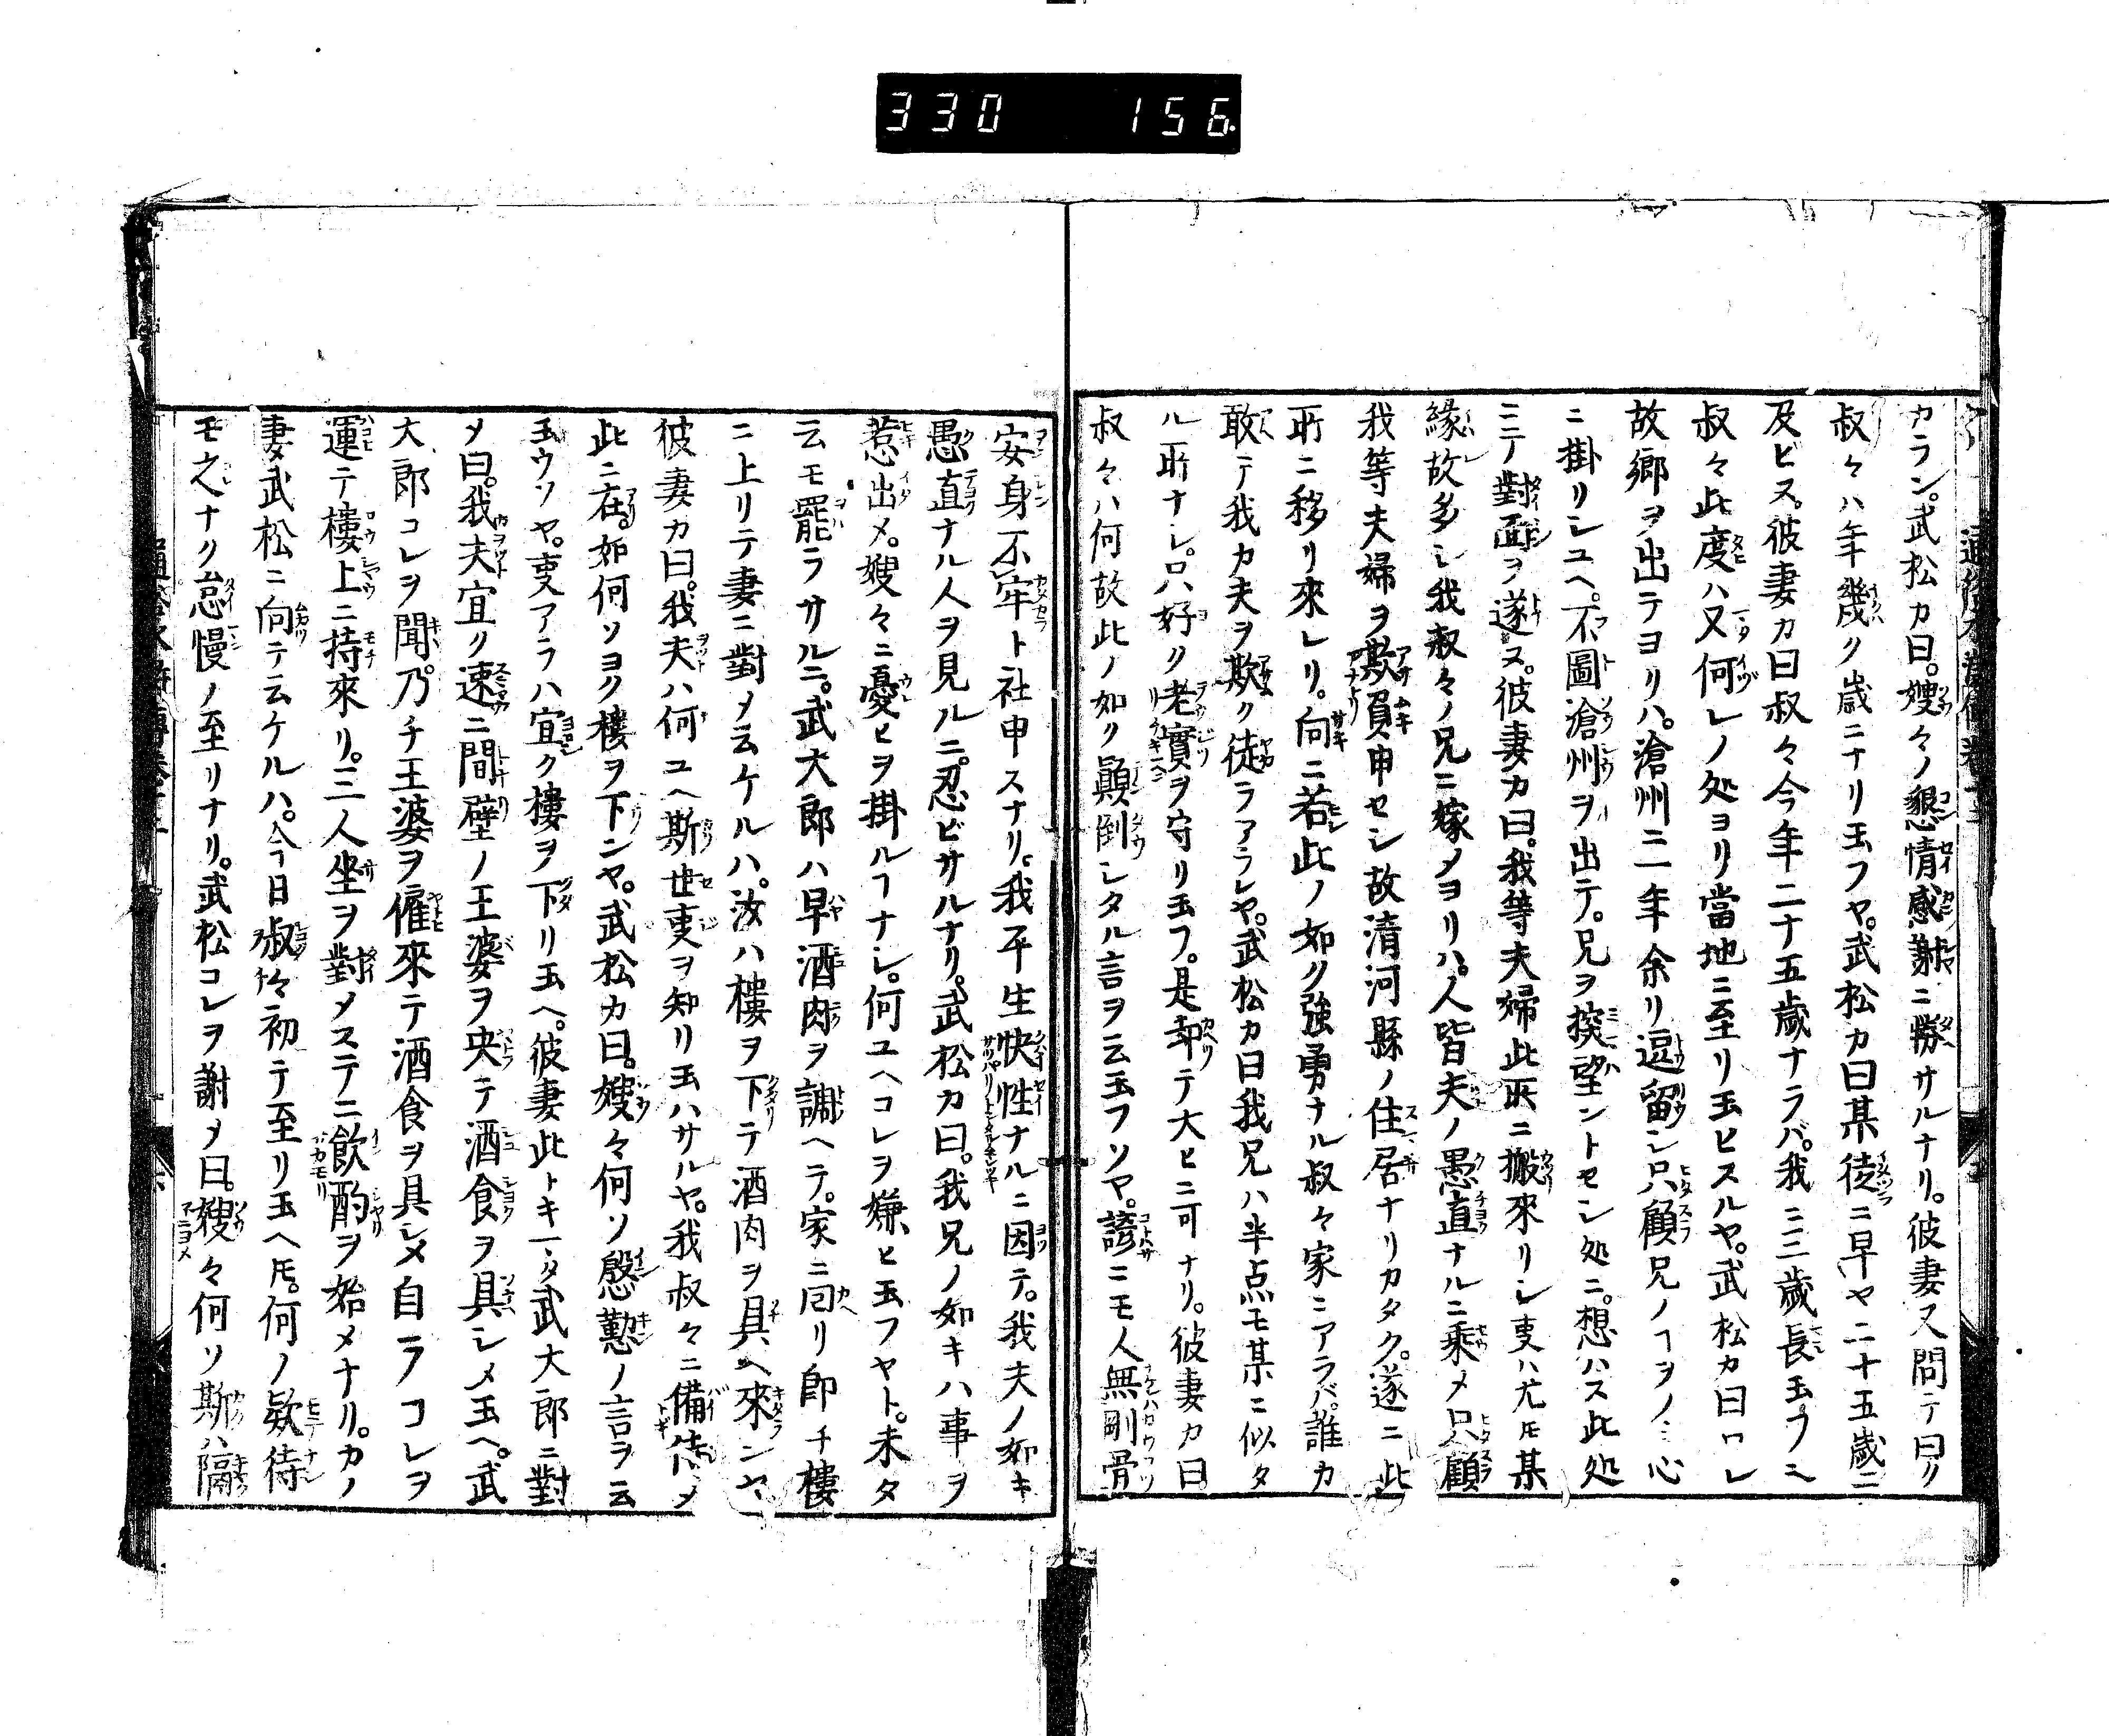 330 156.
カラン。武松カ曰。嫂々ノ懇情感謝ニ勝サルナリ。彼妻又問テ曰ク
叔々ハ年幾ク歳ニナリ玉フヤ。武松カ曰某徒ニ早ヤ二十五歳ニ
及ビヌ。彼妻カ曰叔々今年二十五歳ナラバ。我ニ三歳長玉フニヤ
叔々此度ハ又何レノ処ヨリ當地ニ至リ玉ヒヌルヤ。武松カ曰ワレ
故郷ヲ出テヨリハ。滄州ニ一年余リ逗留シ只顧兄ノヿヲノミ心
ニ掛リシユヘ。不圖滄州ヲ出テ。兄ヲ探望ントセシ処ニ。想ハス此処
ニテ對面ヲ遂ヌ。彼妻カ曰。我等夫婦此所ニ搬來リシ叓ハ尤モ某
縁故多シ我叔々ノ兄ニ嫁メヨリハ。人皆夫ノ愚直ナルニ乗メ只顧
我等夫婦ヲ欺負申セシ故清河縣ノ住居ナリカタク。遂ニ此
所ニ移リ來レリ。向ニ若此ノ如ク強勇ナル叔々家ニアラバ。誰カ
敢テ我カ夫ヲ欺ク徒ラアラレヤ。武松カ曰我兄ハ半点モ某ニ似タ
ル所ナシ。只好ク老實ヲ守リ玉フ。是却テ大ヒニ可ナリ。彼妻カ曰
叔々ハ何故此ノ如ク顛倒シタル言ヲ云玉フソヤ。諺ニモ人無剛骨
安身不牢ト社申スナリ。我平生快性ナルニ因テ。我夫ノ如キ
愚直ナル人ヲ見ルニ。忍ビサルナリ。武松カ曰。我兄ノ如キハ事ヲ
惹出メ。嫂々ニ憂ヒヲ掛ルヿナシ。何ユヘコレヲ嫌ヒ玉フヤト。未タ
云モ罷ラサルニ。武大郎ハ早酒肉ヲ調ヘテ。家ニ回リ即チ樓
ニ上リテ妻ニ對メ云ケルハ。汝ハ樓ヲ下テ酒肉ヲ具ヘ來ンヤ
彼妻カ曰。我夫ハ何ユヘ斯世叓ヲ知リ玉ハサルヤ。我叔々ニ備待メ
此ニ在。如何ソヨク樓ヲ下ンヤ。武松カ曰。嫂々何ソ慇懃ノ言ヲ云
玉ウソヤ。叓アラハ宜ク樓ヲ下リ玉ヘ。彼妻此トキ一タ武大郎ニ對
メ曰。我夫宜ク速ニ間壁ノ王婆ヲ央テ酒食ヲ具シメ玉ヘ。武
大郎コレヲ聞乃チ王婆ヲ僱來テ酒食ヲ具シメ自ラコレヲ
運テ樓上ニ持來リ。三人坐ヲ對メステニ飲酌ヲ始メナリ。カノ
妻武松ニ向テ云ケルハ。今日叔々初テ至リ玉ヘ𪜈。何ノ欵待
モ之ナク怠慢ノ至リナリ。武松コレヲ謝メ曰。嫂々何ソ斯ハ隔